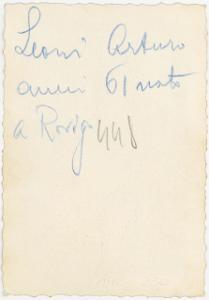 Leoni Arturo
anni 61 nato
a Rovigo 448